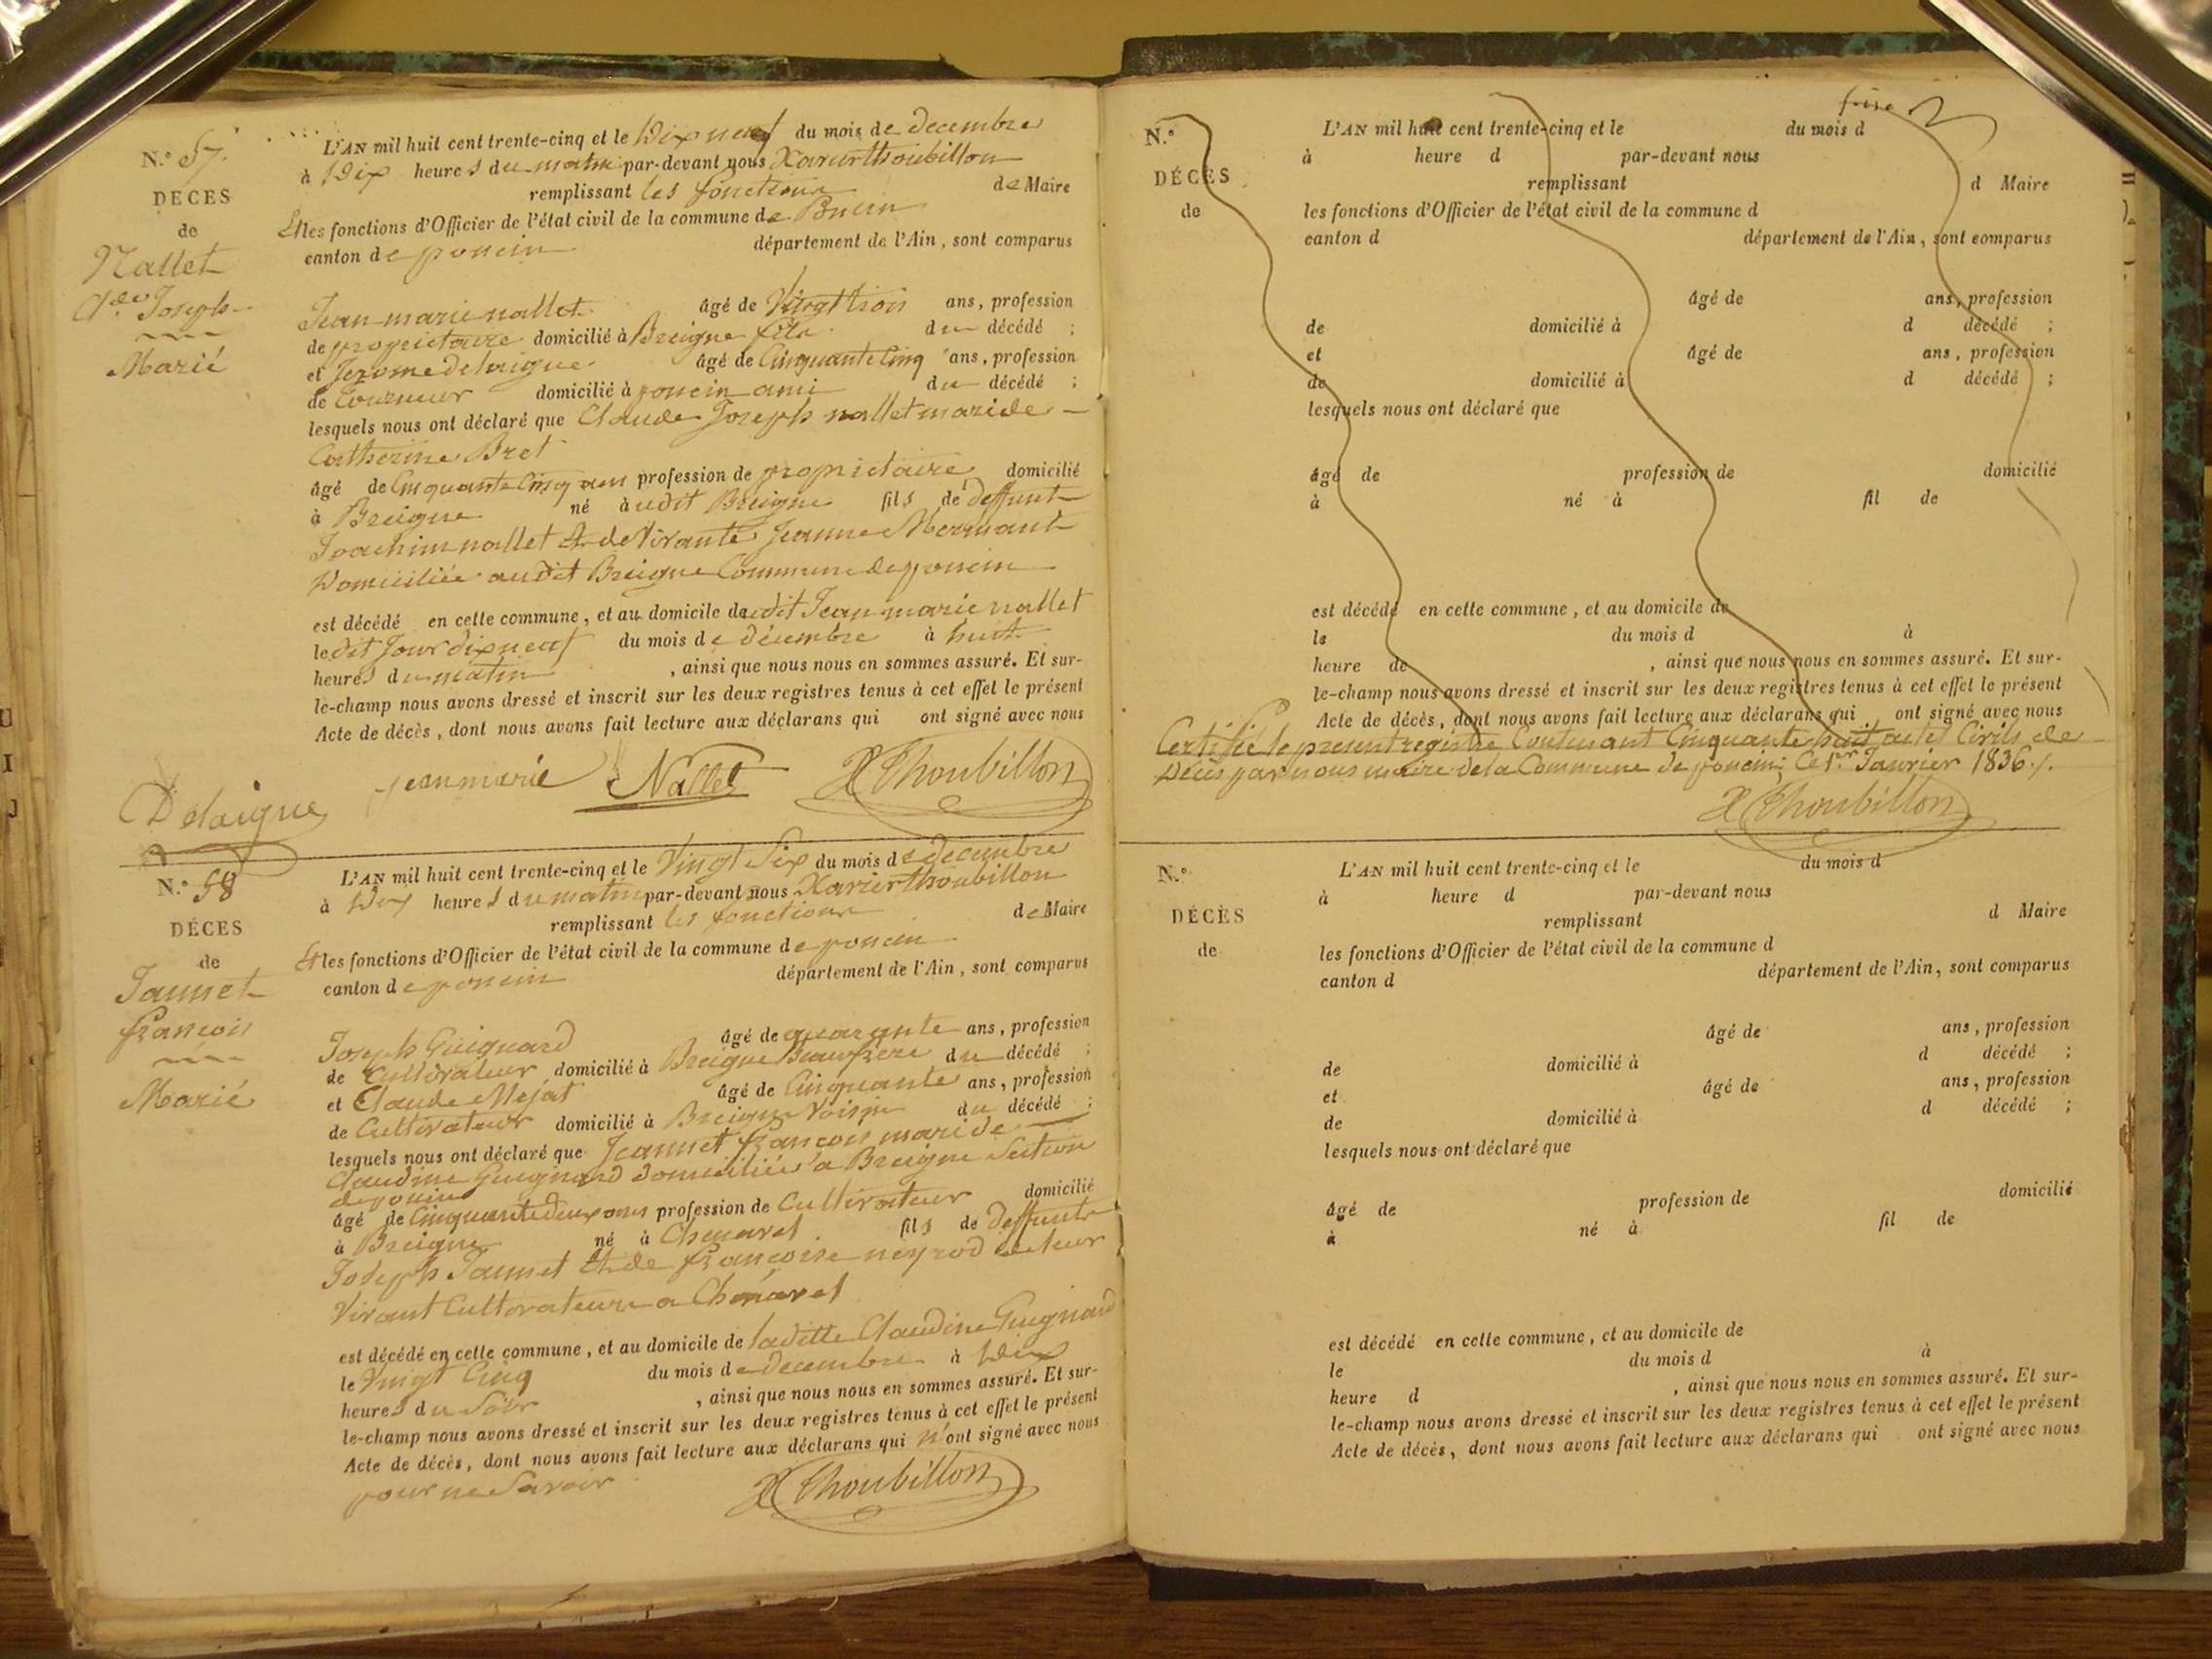 N.º 57.
DECES
de
Nallet
Cl.de Joseph
Marié
L'AN mil huit cent trente-cinq et le Dix neuf du mois de decembre
à Dix heures du matin par-devant nous Xavier thoubillon
remplissant les fonctions de Maire
Et les fonctions d'Officier de l'état civil de la commune de Poncin
canton de poncin département de l'Ain, sont comparus
Jean marie nallet âgé de Vingt trois ans, profession
de proprietaire domicilié à Breigne fils du décédé ;
et Jerome delaigue âgé de Cinquante Cinq ans, profession
de domicilié à poncin ami du décédé ;
lesquels nous ont déclaré que Claude Joseph nallet mari de
Catherine Bret
âgé de Cinquante Cinq ans profession de proprietaire domicilié
à Breigne né à udit Breigne fils de deffunt
Joachim nallet Et de Vivante Jeanne Mermant
Domiciliée audit Breigne Commune de poncin
est décédé en cette commune, et au domicile dudit Jean marie nallet
le dit Jour dix neuf du mois de décembre à huit
heures du matin, ainsi que nous nous en sommes assuré. Et sur-
le-champ nous avons dressé et inscrit sur les deux registres tenus à cet effet le présent
Acte de décès, dont nous avons fait lecture aux déclarans qui ont signé avec nous
jean marie Nallet X Thoubillon
Delaigue
N.º 58
DÉCES
de
Jannet
françois
Marié
L'AN mil huit cent trente-cinq et le Vingt Six du mois de decembre
à Dix heures du matin par-devant nous Xavier thoubillon
remplissant les fonctions de Maire
Et les fonctions d'Officier de l'état civil de la commune de poncin
canton de poncin département de l'Ain, sont comparus
Joseph Guignard âgé de quarante ans, profession
de Cultivateur domicilié à Breigne Beaufrere du décédé ;
et Claude Mejat âgé de Cinquante ans, profession
de Cultivateur domicilié à Breigne Voisin du décédé ;
lesquels nous ont déclaré que Jeannet françois mari de
Claudine Guignard domiciliée a Breigne Section
de poncin
âgé de Cinquante deux ans profession de Cultivateur domicilié
à Breigne né à Chenavel fils de deffunts
Joseph Jannet Et de françoise neyrod de leur
Vivant Cultivateurs a Chenavel
est décédé en cette commune, et au domicile de laditte Claudine Guignard
le Vingt Cinq du mois de decembre à Dix
heures du Soir, ainsi que nous nous en sommes assuré. Et sur-
le-champ nous avons dressé et inscrit sur les deux registres tenus à cet effet le présent
Acte de décès, dont nous avons fait lecture aux déclarans qui n'ont signé avec nous
pour ne Savoir
X Thoubillon
N.º
DÉCES
de
L'AN mil huit cent trente-cinq et le du mois d
à heure d par-devant nous
remplissant d Maire
les fonctions d'Officier de l'état civil de la commune d
canton d département de l'Ain, sont comparus
âgé de ans, profession
de domicilié à d décédé ;
et âgé de ans, profession
de domicilié à d décédé ;
lesquels nous ont déclaré que
âgé de profession de domicilié
à né à fil de
est décédé en cette commune, et au domicile de
le du mois d à
heure de, ainsi que nous nous en sommes assuré. Et sur-
le-champ nous avons dressé et inscrit sur les deux registres tenus à cet effet le présent
Acte de décès, dont nous avons fait lecture aux déclarans qui ont signé avec nous
Certifié le present registre Contenant Cinquante huit actes Civils de
Décès par nous maire de la Commune de poncin, Ce 1er Janvier 1836 ./.
X Thoubillon
N.º
DÉCÈS
de
L'AN mil huit cent trente-cinq et le du mois d
à heure d par-devant nous
remplissant d Maire
les fonctions d'Officier de l'état civil de la commune d
canton d département de l'Ain, sont comparus
âgé de ans, profession
de domicilié à d décédé ;
et âgé de ans, profession
de domicilié à d décédé ;
lesquels nous ont déclaré que
âgé de profession de domicilié
à né à fil de
est décédé en cette commune, et au domicile de
le du mois d à
heure d, ainsi que nous nous en sommes assuré. Et sur-
le-champ nous avons dressé et inscrit sur les deux registres tenus à cet effet le présent
Acte de décès, dont nous avons fait lecture aux déclarans qui ont signé avec nous